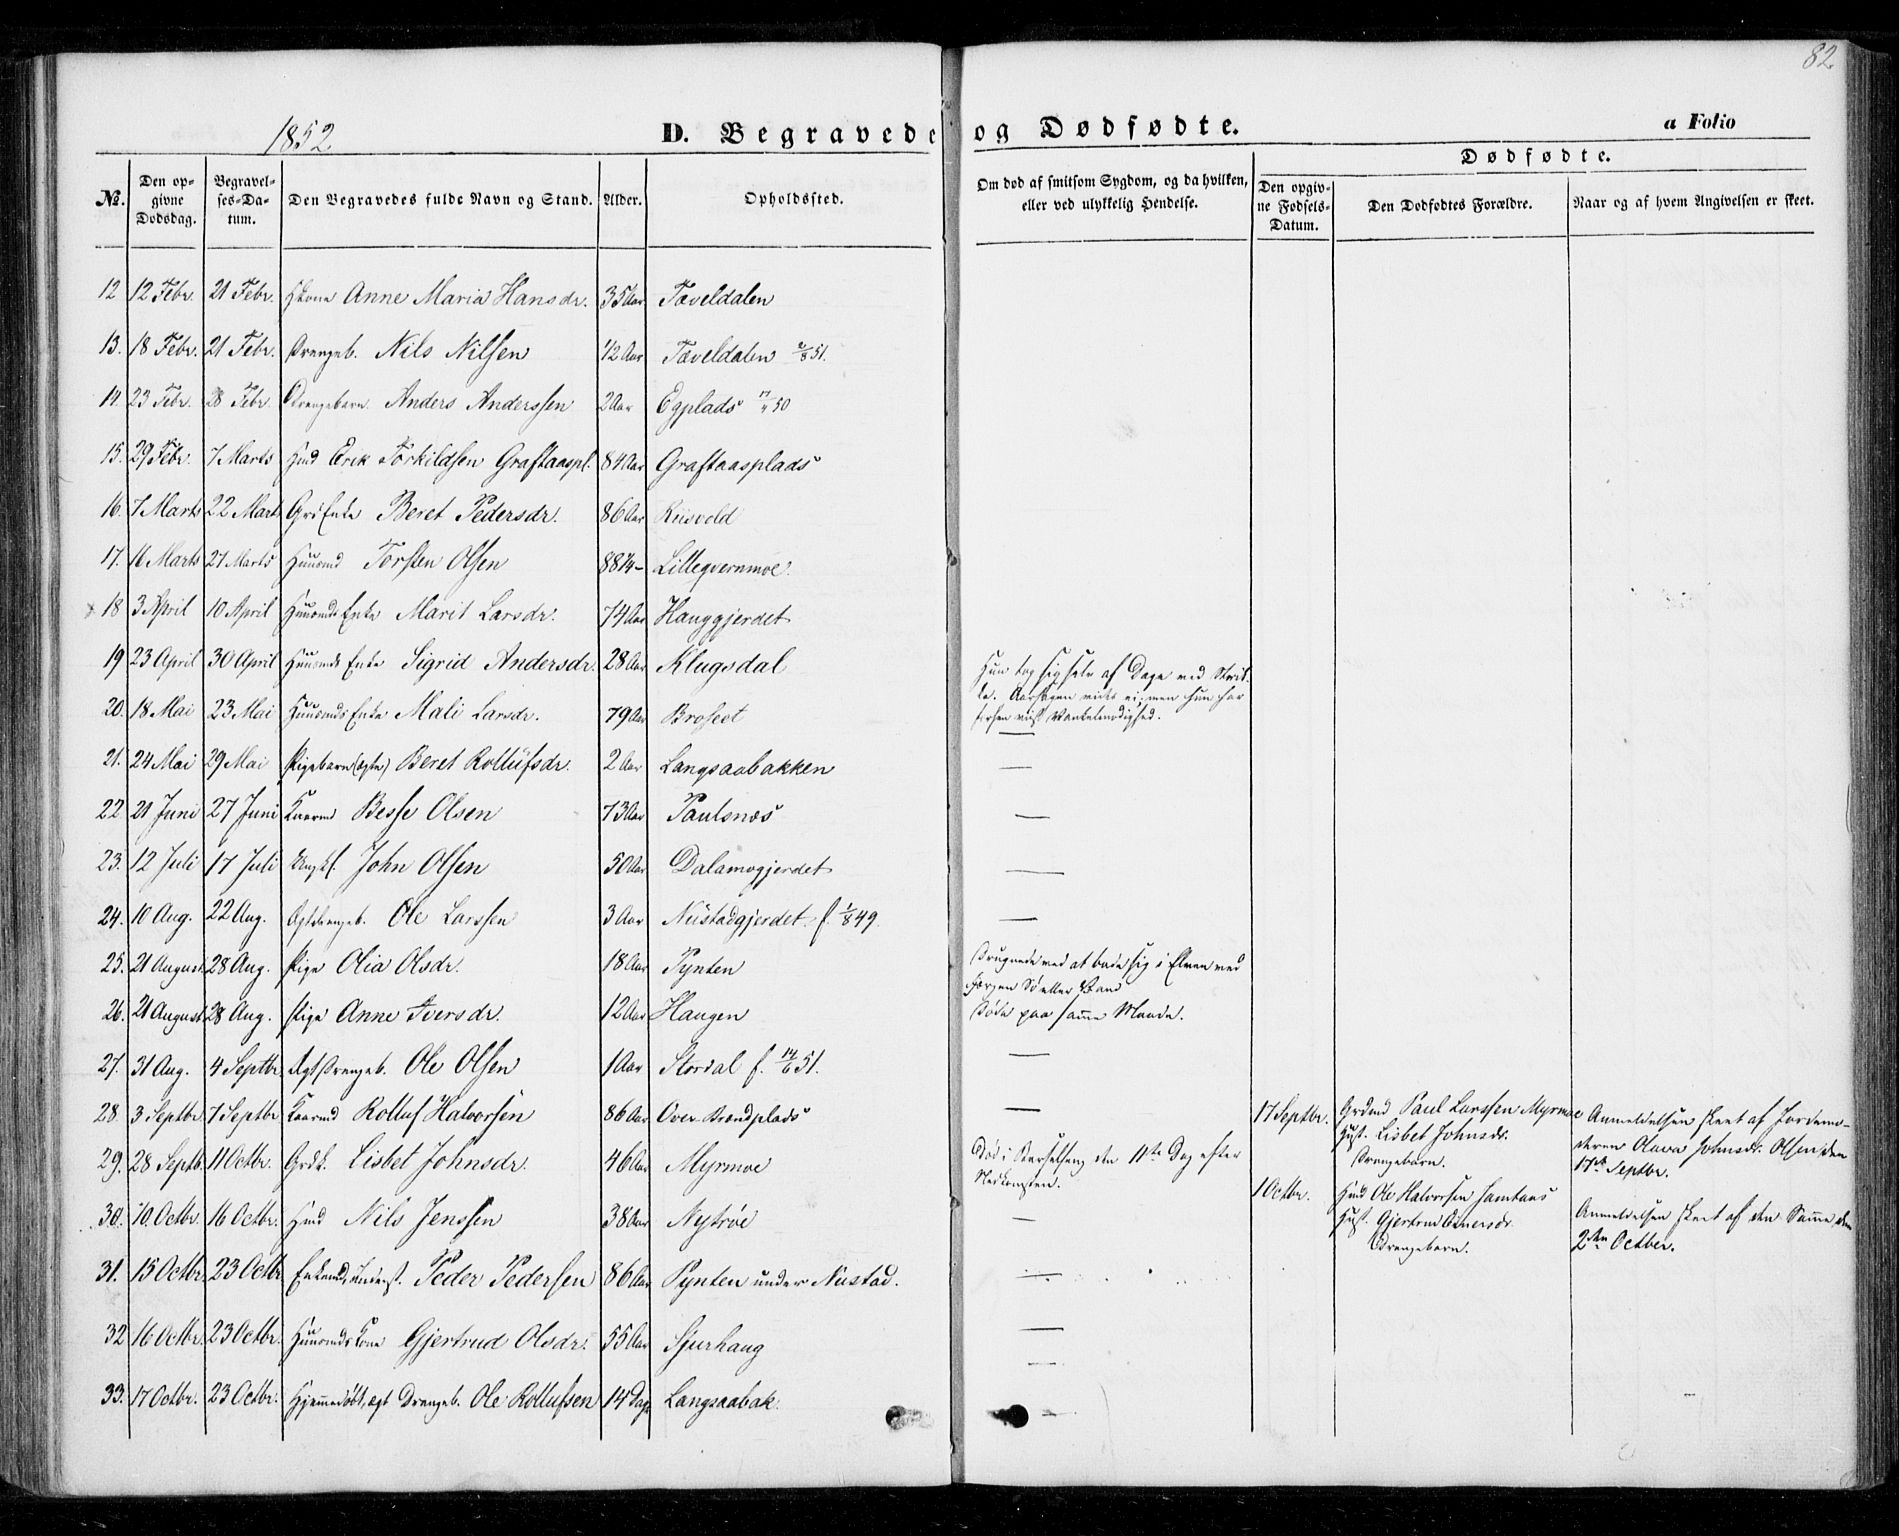 82
1852
D. Begravede og Dødfødte.
a Folio
No.
Den opgivne Dødsdag.
Begravelses-Datum.
Den Begravedes fulde Navn og Stand.
Alder.
Opholdssted.
Om død af smitsom Sygdom, og da hvilken, eller ved ulykkelig Hendelse.
Dødfødte.
Den opgivne Fødsels-Datum.
Den Dødfødtes Forældre.
Naar og af hvem Angivelsen er skeet.
12 12 Febr. 21 Febr. Kone Anne Maria Hansdr. 35 Aar Tæveldalen
13. 18 Febr. 21 Febr. Drengeb. Nils Nilsen 1/2 Aar Tæveldalen 51.
14 23 Febr. 28 Febr. Drengebarn Anders Anderssen 2 Aar Egplads 50
15. 29 Febr. 7 Marts Hmd Erik Torkildsen Graftaaspl. 84 Aar Graftaasplads
16. 7 Marts 22 Mart Grd Enke Beret Pedersdr. 86 Aar Riisvold
17. 16 Marts 27 Marts Huusmd Torsten Olsen 88 1/4 - Lillegvernmoe.
18 3 April 10 April Huusmds Enke Marit Larsdr. 74 Aar Hauggjerdet
19 23 April 30 April Huusmds Enke Sigrid Andersdr. 28 Aar Klugsdal Hun tog sig selv af Dage ved Strik-
ke. Aarsagen vides ei; men hun har
forhen viist Vankelmodighed.
20. 18 Mai 23 Mai Huusmds Enke Mali Larsdr. 79 Aar Broseet —
21. 24 Mai 29 Mai Pigebarn (ægte) Beret Rollufsdr. 2 Aar Langsaabakken —
22 21 Juni 27 Juni Kaarmd Besse Olsen 73 Aar Paulsnæs —
23. 12 Juli 17 Juli Ungk. John Olsen 50 Aar Dalamogjerdet —
24. 10 Aug. 22 Aug. Ægt Drengeb. Ole Larssen 3 Aar Nustadgjerdet f. 1/8 49 —
25. 21 August 28 Aug. Pige Olia Olsdr. 18 Aar Pynten Druknede ved at bade sig i Elven ved
26. 21 August 28 Aug. Pige Anne Iversdr. 12 Aar Haugen Døde paa samme Maade.
27. 31 Aug. 4 Septbr. Ægt Drengeb. Ole Olsen 1 Aar Stordal f. 14/6 51. —
28 3 Septbr. 7 Septbr Kaarmd Rolluf Halvorsen 86 Aar Over Brandplads —
17 Septbr. Grdmd Paul Larssen Myrmoe
Hust. Lisbet Johnsdr.
Drengebarn.
Anmeldelsen skeet af Jordemo-
deren Olava Johnsdr. Olsen den
17de Septbr.
29. 28 Septb. 11 Octbr. Grdk. Lisbet Johnsdr. 46 Aar Myrmoe Død i Barselseng den 11te Dag efter
Nedkomsten.
1 Octbr. Hmd Ole Halvorsen
Hust. Gjertrud
Drengebarn.
Anmeldelsen skeet af den Samme den
2den Octber.
30. 10 Octbr. 16 Octbr. Hmd Nils Jenssen 38 Aar Nytrøe —
31. 15 Octbr. 23 Octbr Enkemd, Inderst. Peder Pedersen 86 Aar Pynten under Nustad. —
32 16 Octbr. 23 Octbr. Huusmds Kone Gjertrud Olsdr. 55 Aar Sjurhaug —
33. 17 Octbr. 23 Octbr. Hjemmedøbt, ægt Drengeb. Ole Rollufsen 14 Dage Langsaabak. —